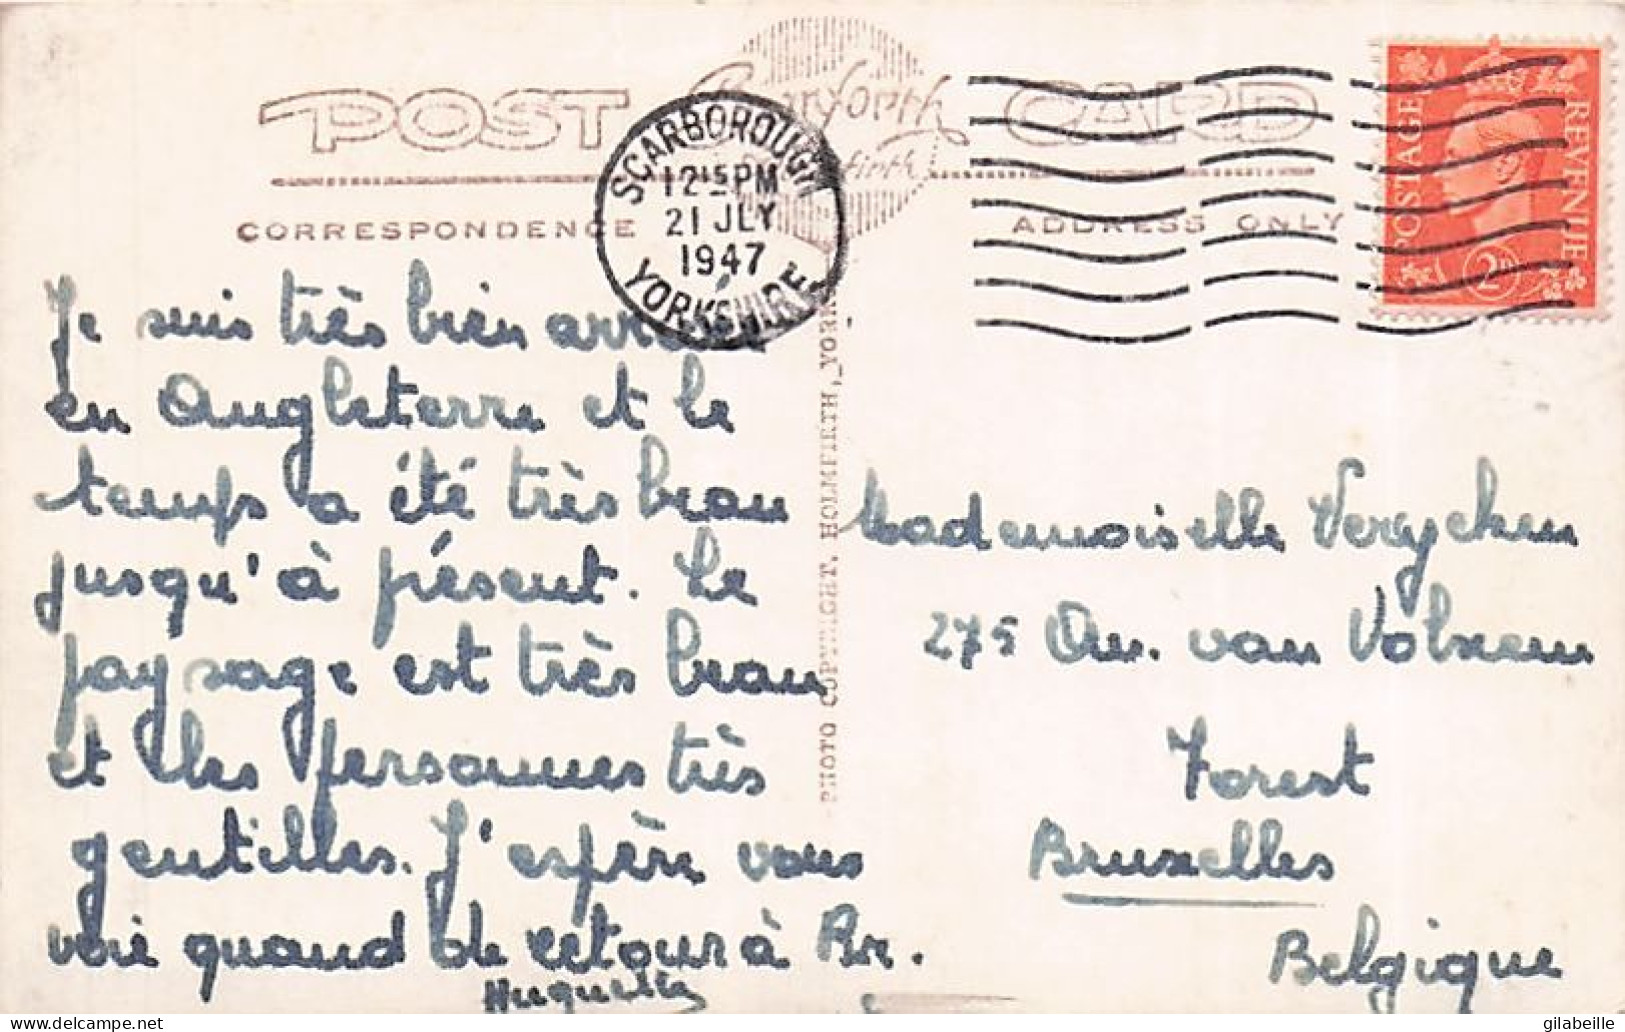 POST CARD
Bamforth
CORRESPONDENCE
ADDRESS ONLY
SCARBOROUGH
12 15 PM
21 JLY
1947
YORKSHIRE
POSTAGE
REVENUE
2D
PHOTO COPYRIGHT. HOLMFIRTH, YORKS
Je suis très bien
en Angleterre et le
temps a été très beau
jusqu'à présent. Le
paysage est très beau
et les personnes très
gentilles. J'espère vous
voir quand de retour à Br.
Huguette
Mademoiselle
275 Av. van Volxem
Forest
Bruxelles
Belgique
gilabeille